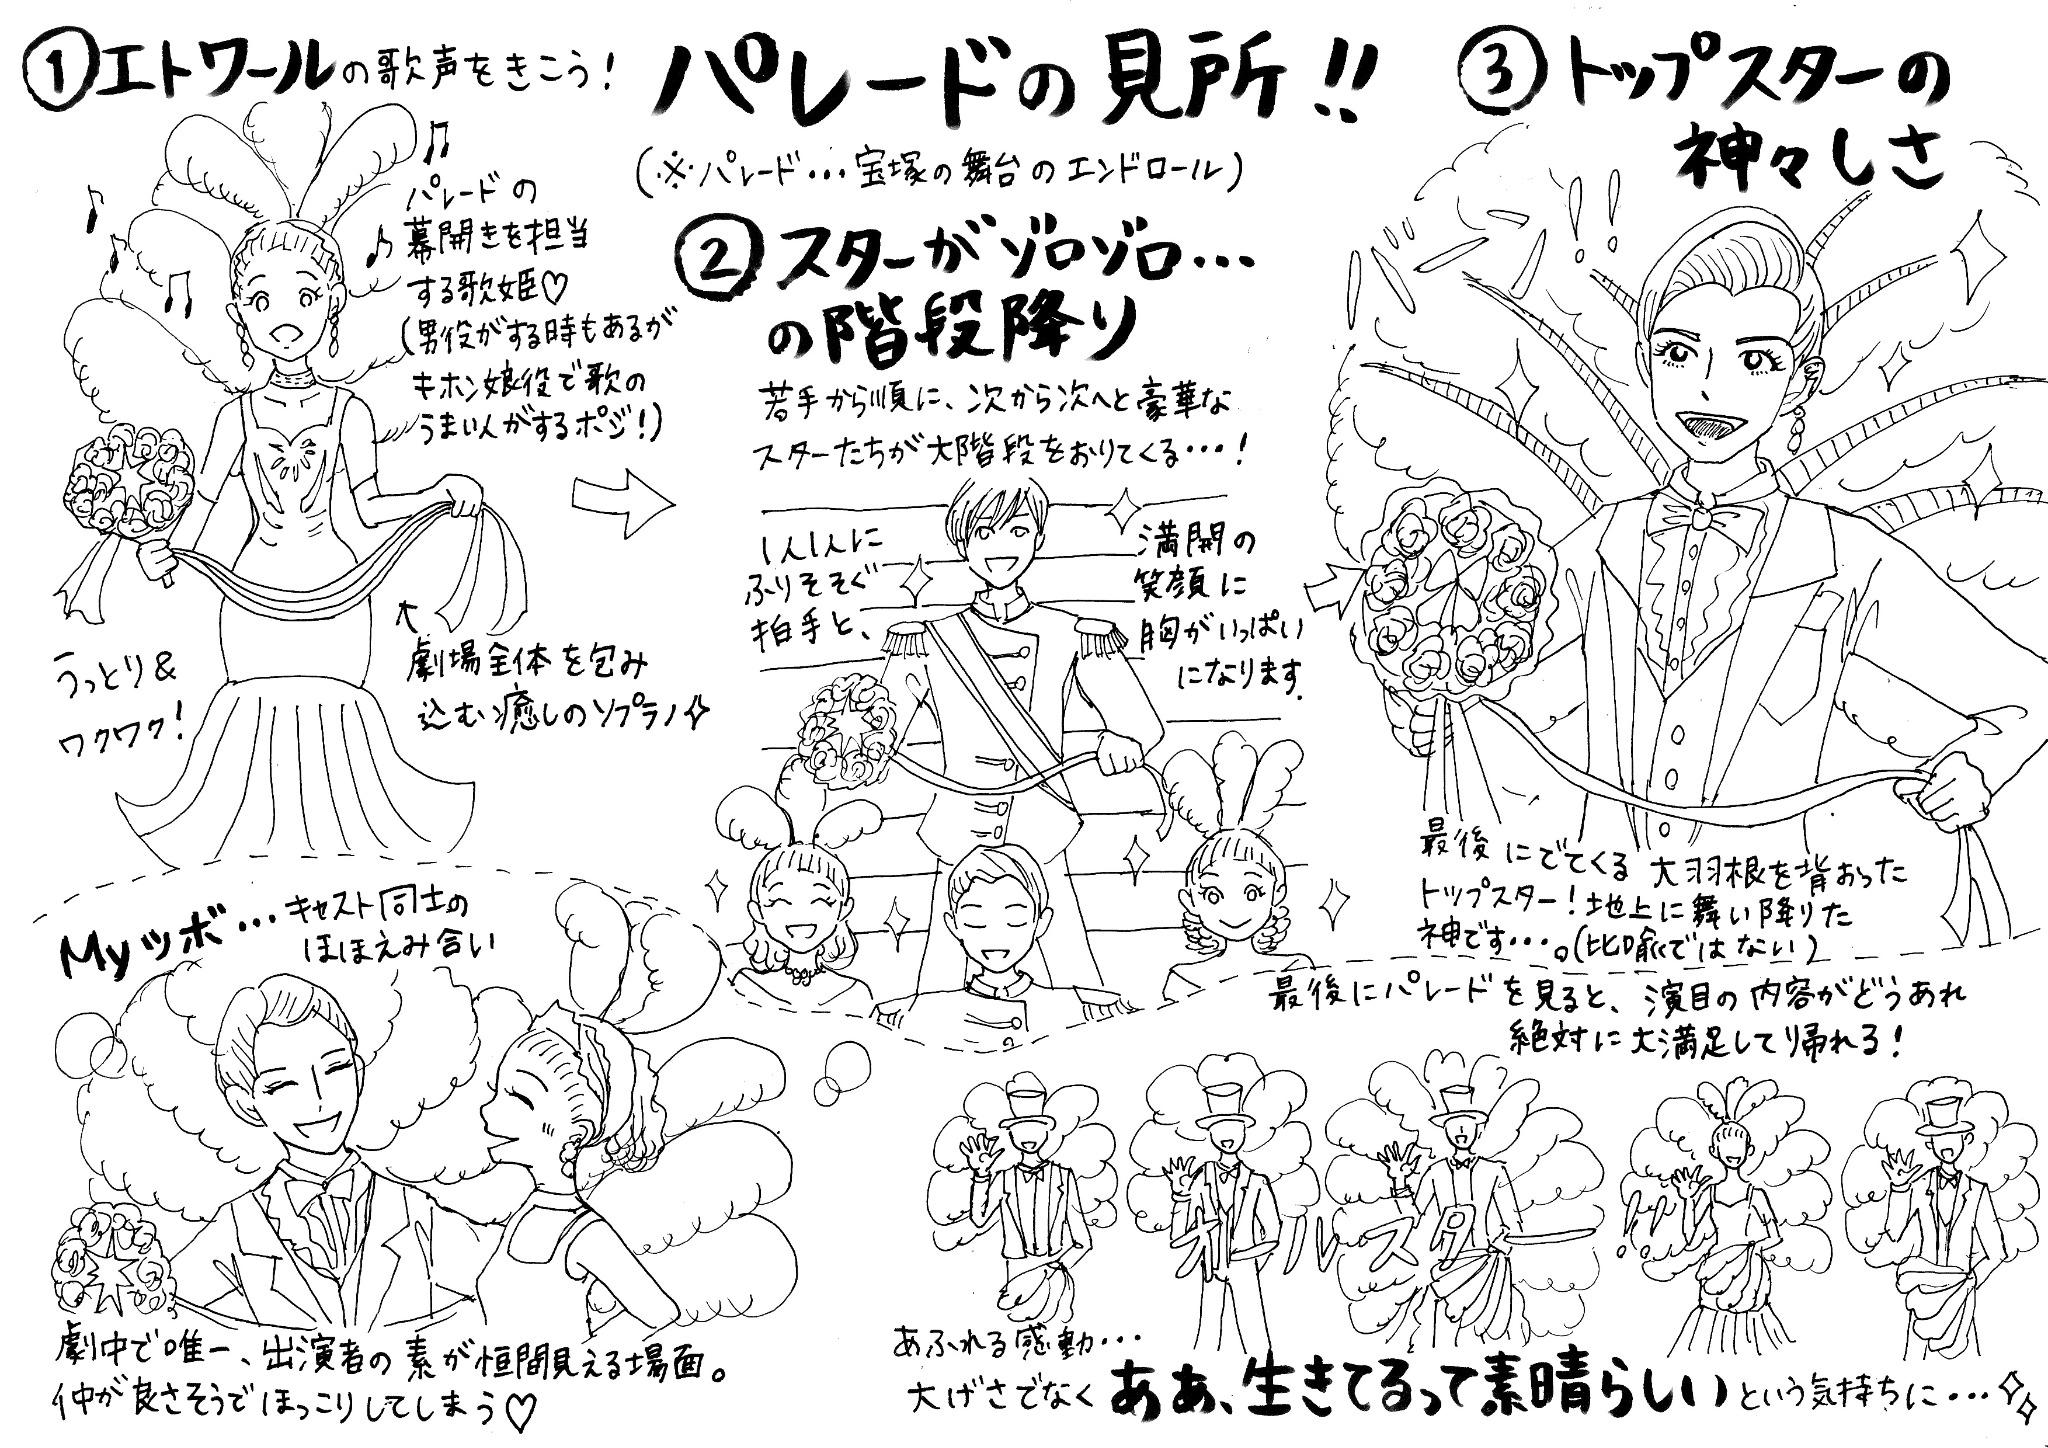 パレードの見所!!
(※パレード…宝塚の舞台のエンドロール)
①エトワールの歌声をきこう!
パレードの
幕開きを担当
する歌姫♡
(男役がする時もあるが
キホン娘役で歌の
うまい人がするポジ!)
うっとり&
ワクワク!
劇場全体を包み
込む癒しのソプラノ✧
②スターがゾロゾロ…
の階段降り
若手から順に、次から次へと豪華な
スターたちが大階段をおりてくる…!
1人1人に
ふりそそぐ
拍手と、
満開の
笑顔に
胸がいっぱい
になります.
③トップスターの
神々しさ
最後にでてくる大羽根を背おった
トップスター!地上に舞い降りた
神です…。(比喩ではない)
Myツボ…キャスト同士の
ほほえみ合い
劇中で唯一、出演者の素が恒間見える場面。
仲が良さそうでほっこりしてしまう♡
最後にパレードを見ると、演目の内容がどうあれ
絶対に大満足して帰れる!
オールスター!!
あふれる感動…
大げさでなくああ、生きてるって素晴らしいという気持ちに…✧